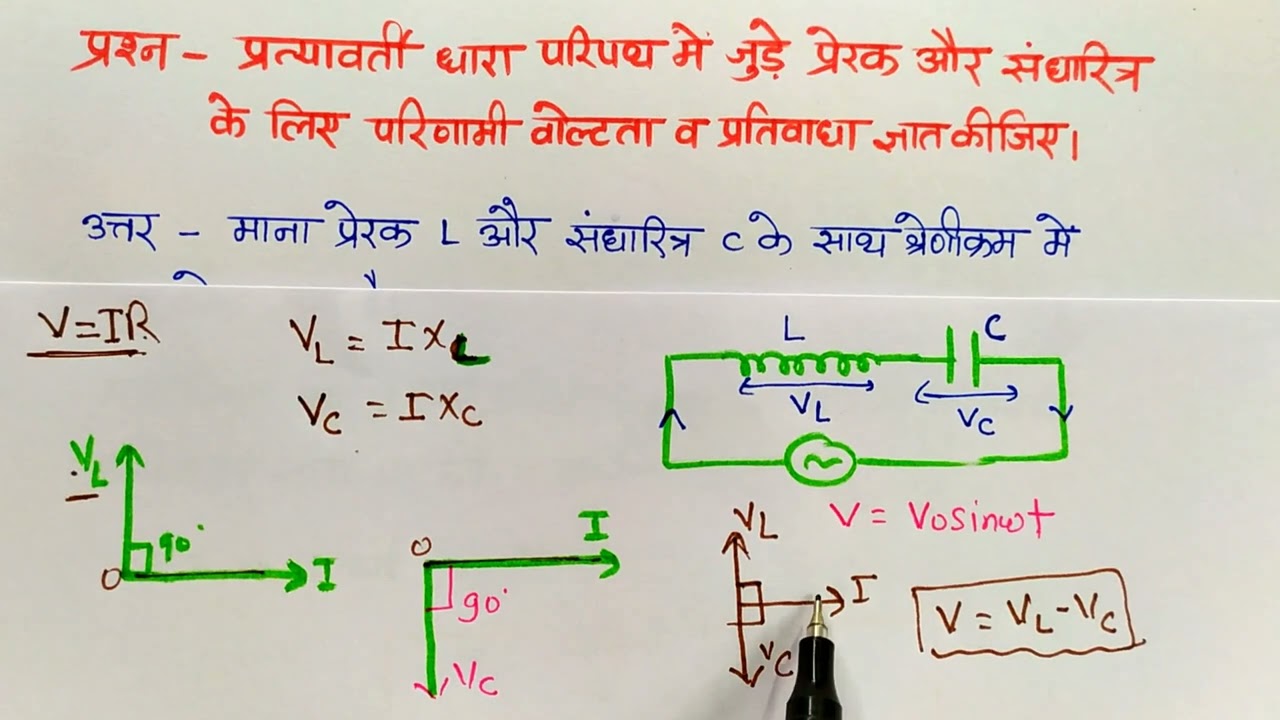 प्रश्न - प्रत्यावर्ती धारा परिपथ में जुड़े प्रेरक और संधारित्र
के लिए परिणामी वोल्टता व प्रतिबाधा ज्ञात कीजिए।
उत्तर - माना प्रेरक L और संधारित्र C के साथ श्रेणीक्रम में
V=IR
V_L = I X_L
V_C = I X_C
L
C
V_L
V_C
~
V = V0sinωt
V_L
90°
O
I
O
I
90°
V_C
V_L
I
V_C
V = V_L - V_C